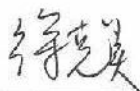 徐克美